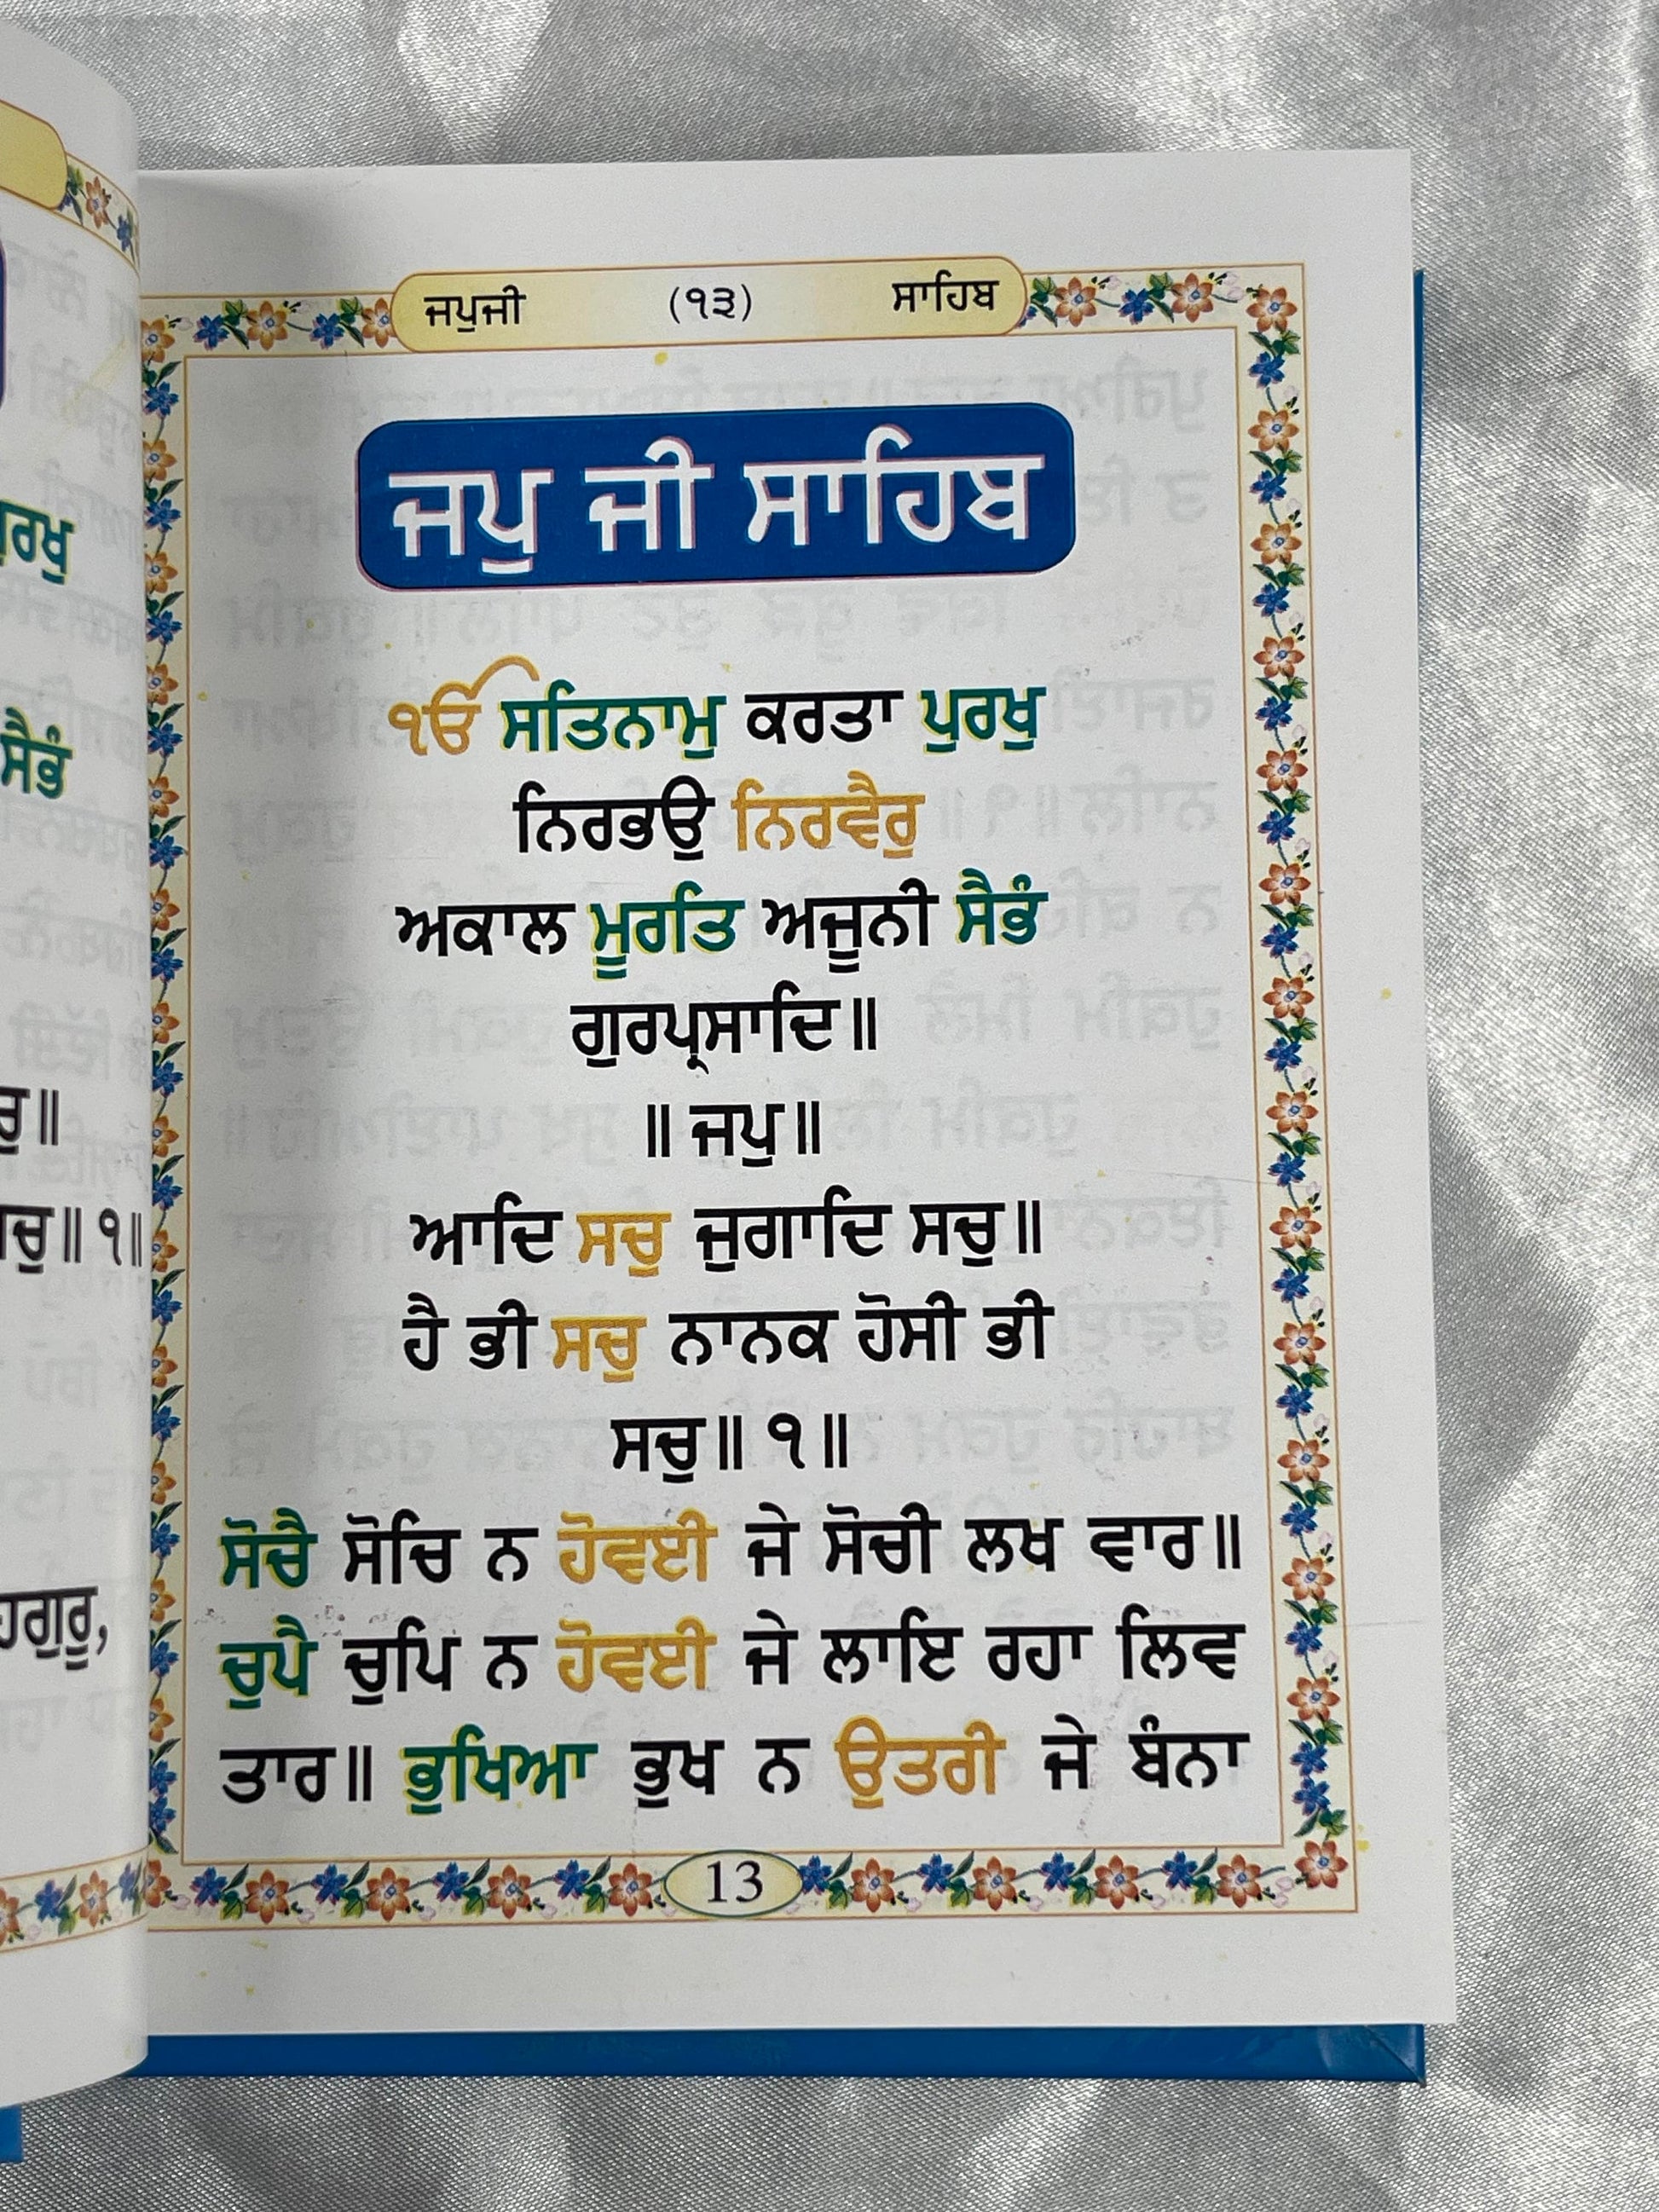 ਰਖੁ
ਸੈਭੰ
ਰੁ॥
ਚੁ॥ ੧॥
ਹਗੁਰੂ,
ਜਪੁਜੀ (੧੩) ਸਾਹਿਬ
ਜਪੁ ਜੀ ਸਾਹਿਬ
ੴ ਸਤਿਨਾਮੁ ਕਰਤਾ ਪੁਰਖੁ
ਨਿਰਭਉ ਨਿਰਵੈਰੁ
ਅਕਾਲ ਮੂਰਤਿ ਅਜੂਨੀ ਸੈਭੰ
ਗੁਰਪ੍ਰਸਾਦਿ॥
॥ ਜਪੁ॥
ਆਦਿ ਸਚੁ ਜੁਗਾਦਿ ਸਚੁ॥
ਹੈ ਭੀ ਸਚੁ ਨਾਨਕ ਹੋਸੀ ਭੀ
ਸਚੁ॥ ੧॥
ਸੋਚੈ ਸੋਚਿ ਨ ਹੋਵਈ ਜੇ ਸੋਚੀ ਲਖ ਵਾਰ॥
ਚੁਪੈ ਚੁਪਿ ਨ ਹੋਵਈ ਜੇ ਲਾਇ ਰਹਾ ਲਿਵ
ਤਾਰ॥ ਭੁਖਿਆ ਭੁਖ ਨ ਉਤਰੀ ਜੇ ਬੰਨਾ
13